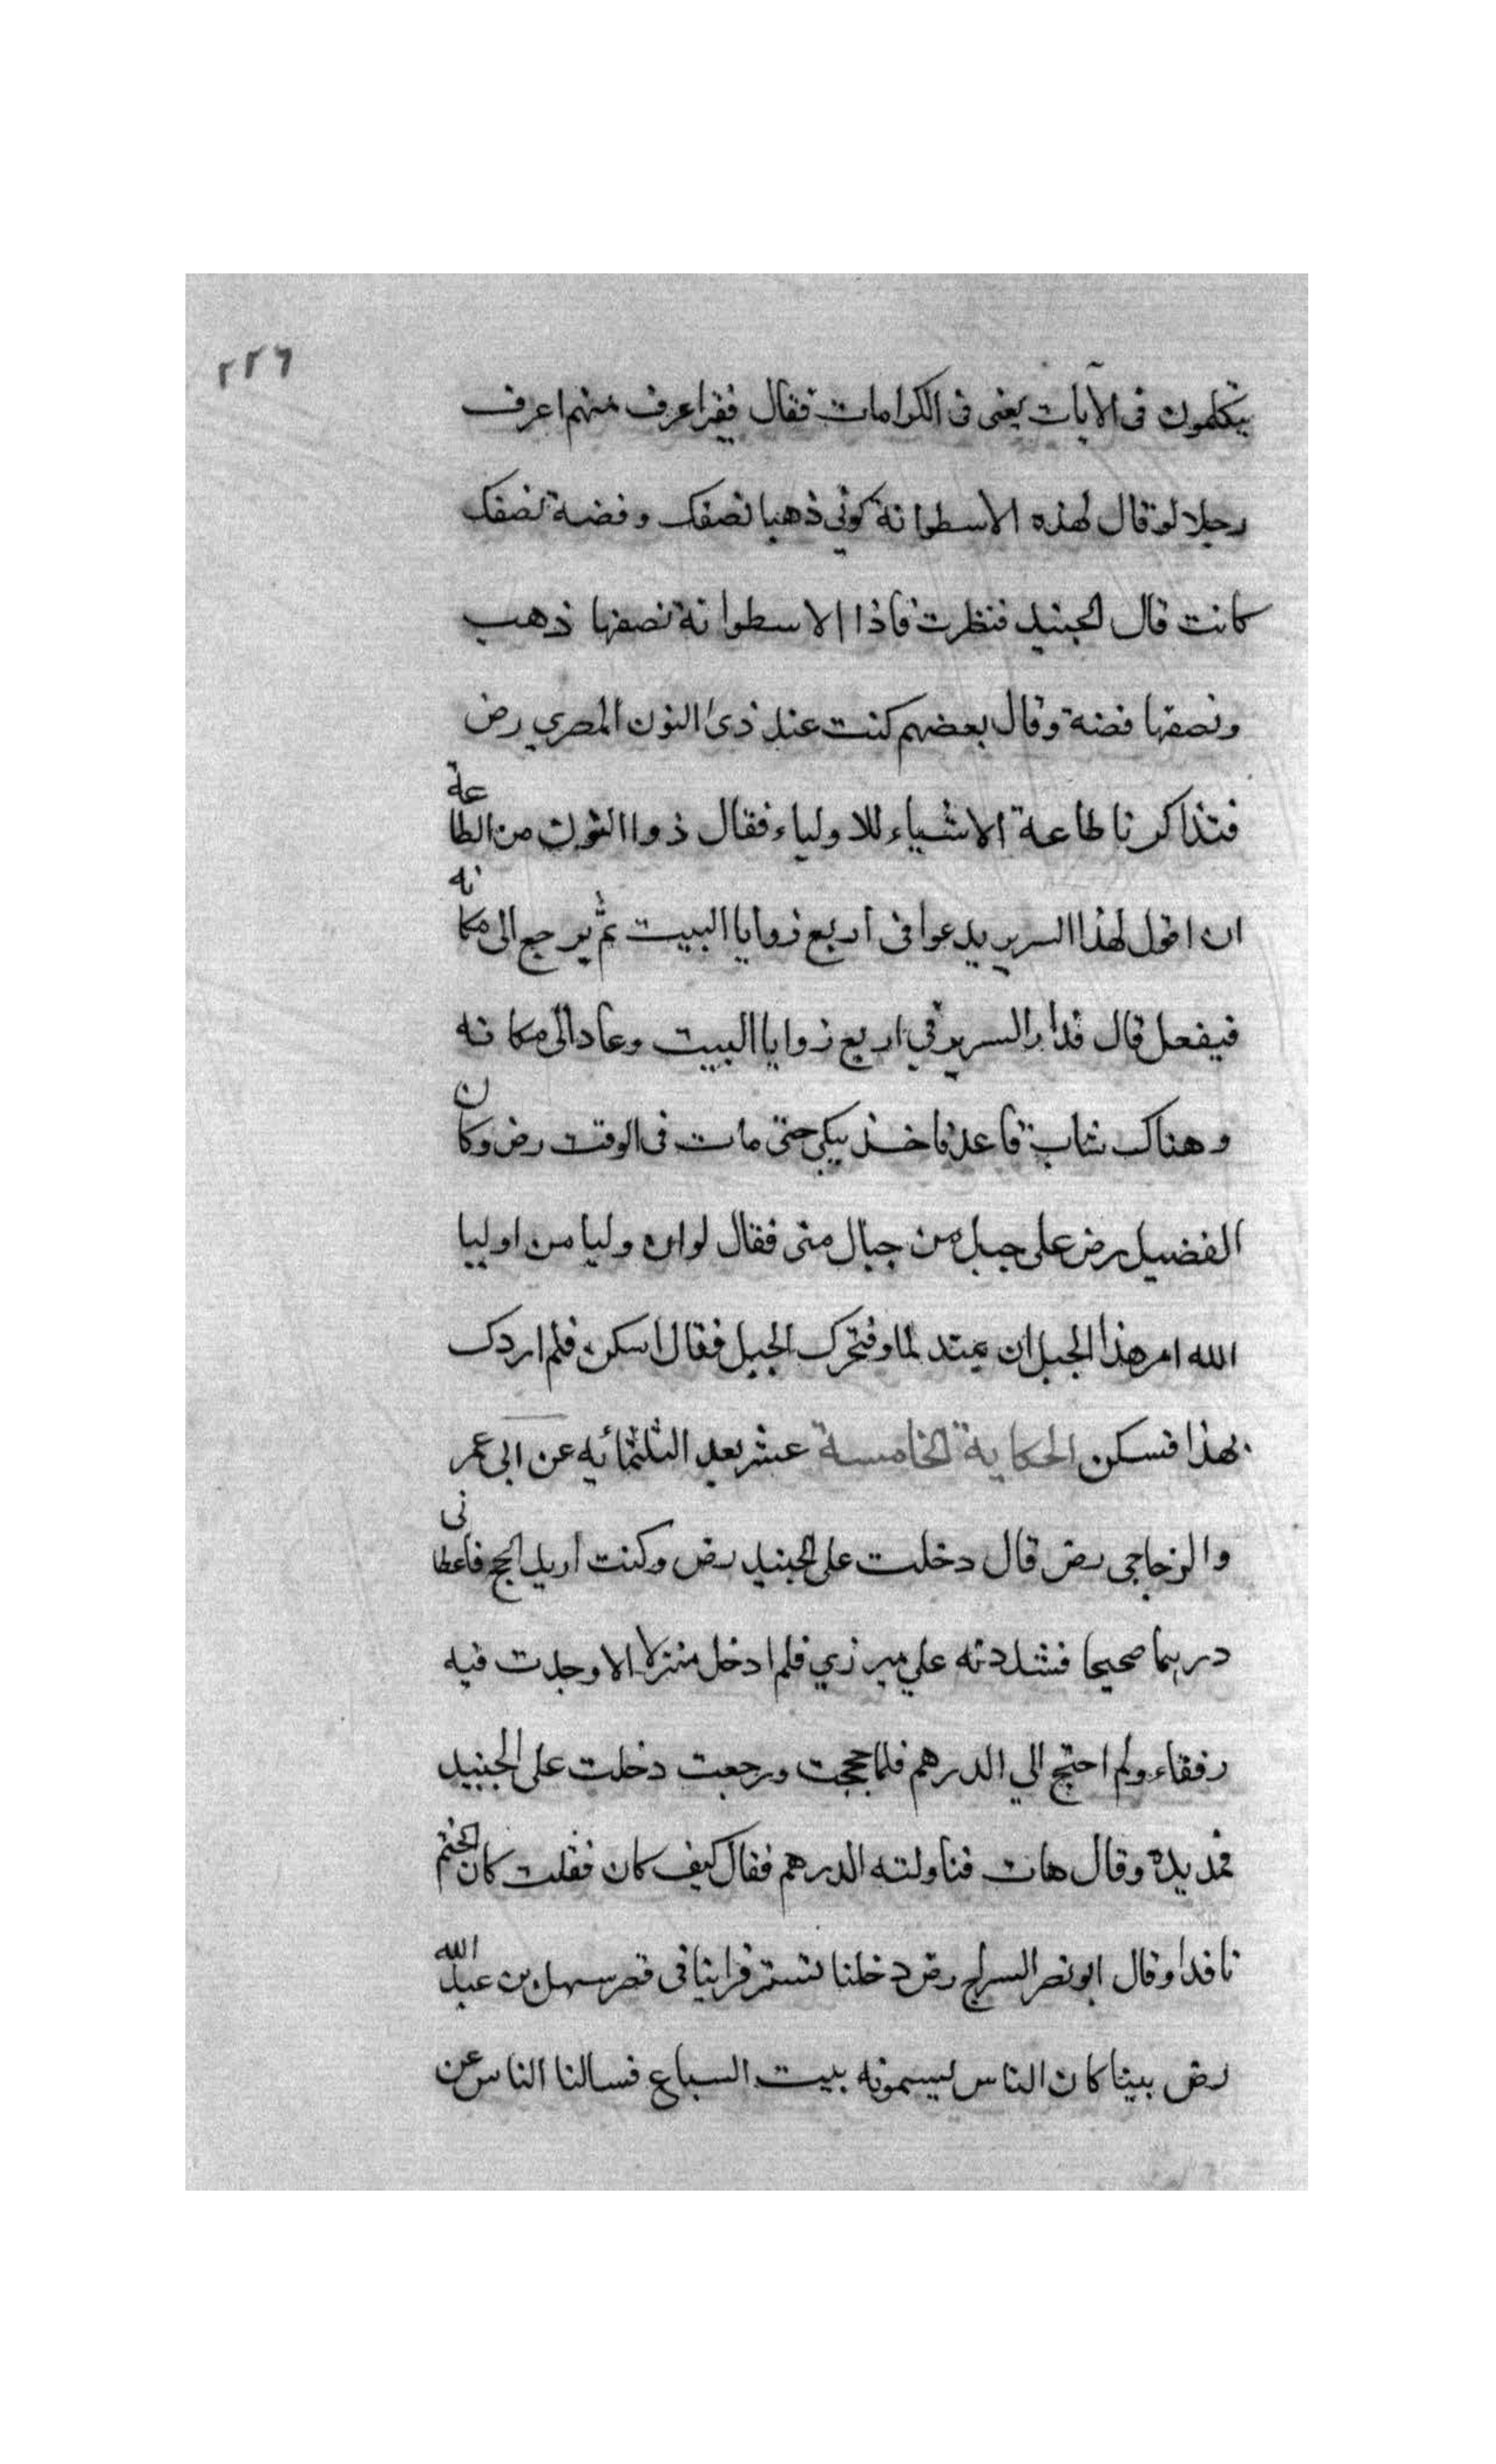 ٢٢٦
يتكلمون فى الآيات يعنى فى الكرامات فقال فقير اعرف منهم اعرف
رجلا لو قال لهذه الاسطوانة كوني ذهبا نصفك وفضة نصفك
كانت قال الجنيد فنظرت فاذا الاسطوانة نصفها ذهب
ونصفها فضة وقال بعضهم كنت عند ذى النون المصري رض
فتذاكرنا طاعة الاشياء للاولياء فقال ذوا النون من الطاعة
ان اقول لهذا السرير يدعوا فى اربع زوايا البيت ثم يرجع الى مكانه
فيفعل قال فدار السرير في اربع زوايا البيت وعاد الى مكانه
وهناك شاب قاعد فاخذ يبكى حتى مات فى الوقت رض وكان
الفضيل رض على جبل من جبال منى فقال لو ان وليا من اوليا
الله امر هذا الجبل ان يمتد لماد فتحرك الجبل فقال اسكن فلم اردك
بهذا فسكن الحكاية الخامسة عشر بعد الثلثمائيه عن ابى عمر
والزجاجى رض قال دخلت على الجنيد رض وكنت اريد الحج فاعطانى
درهما صحيحا فشددته علي ميزري فلم ادخل منزلا الا وجدت فيه
رفقاء ولم احتج الي الدرهم فلما حججت ورجعت دخلت على الجنيد
فمد يده وقال هات فناولته الدرهم فقال كيف كان فقلت كان الختم
نافدا وقال ابو نصر السراج رض دخلنا تستر فراينا فى قصر سهل بن عبد الله
رض بيتا كان الناس ليسمونه بيت السباع فسالنا الناس عن